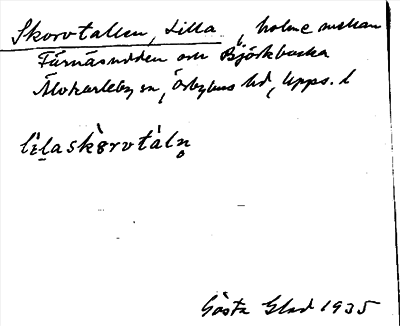 Skorvtallen, Lilla, holme mellan
Färnäsudden och Björkbacka
Älvkarleby sn, Örbyhus hd, Upps. l
lìlaskὸrvtáln̥
Gösta Glad 1935